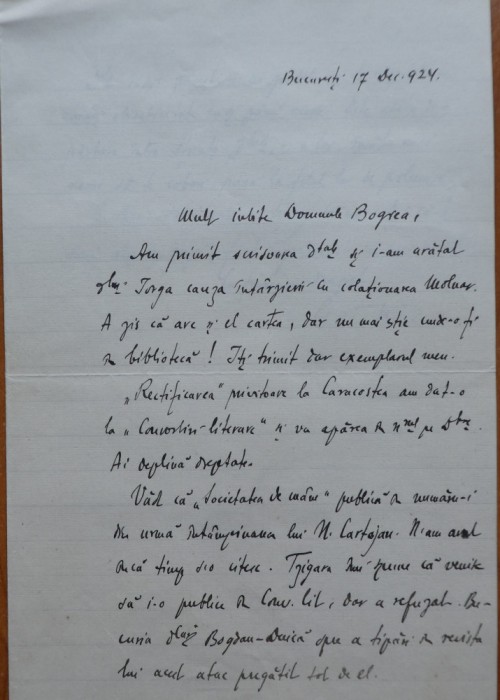 București 17 Dec. 924.
Mult iubite Domnule Bogrea,
Am primit scrisoarea dtale și i-am arătat
dlui Iorga cauza întârzierii cu colaționarea Molnar.
A zis că are și el cartea, dar nu mai știe unde-o fi
în bibliotecă! Iți trimit dar exemplarul meu.
„Rectificarea" privitoare la Caracostea am dat-o
la „Convorbiri literare" și va apărea în nrul pe Dbre.
Ai deplină dreptate.
Văd că „Societatea de mâine" publică în numărul-i
din urmă întâmpinarea lui N. Cartojan. N-am avut
încă timp s-o citesc. Tzigara îmi spune că venise
să i-o publice în Conv. lit., dar a refuzat. Bu-
curia dlui Bogdan-Duică de a tipări în revista
lui acest atac pregătit tot de el.